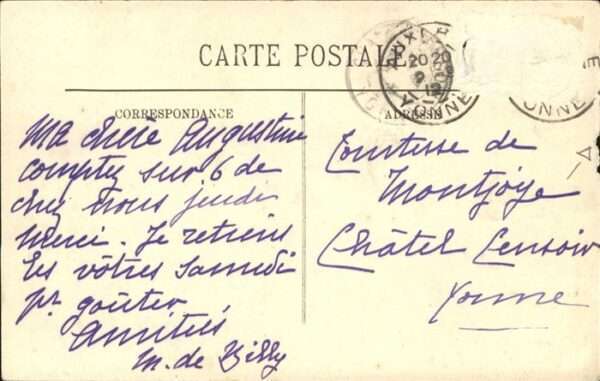 CARTE POSTALE
CORRESPONDANCE
Ma chère Augustine
comptez sur 6 de
chez nous jeudi
merci. Je retiens
les vôtres samedi
pr. goûter
Amitiés
M. de Billy
ADRESSE
Comtesse de
Montjoye
Châtel Censoir
Yonne
20 20
9
12
YONNE
ONNE